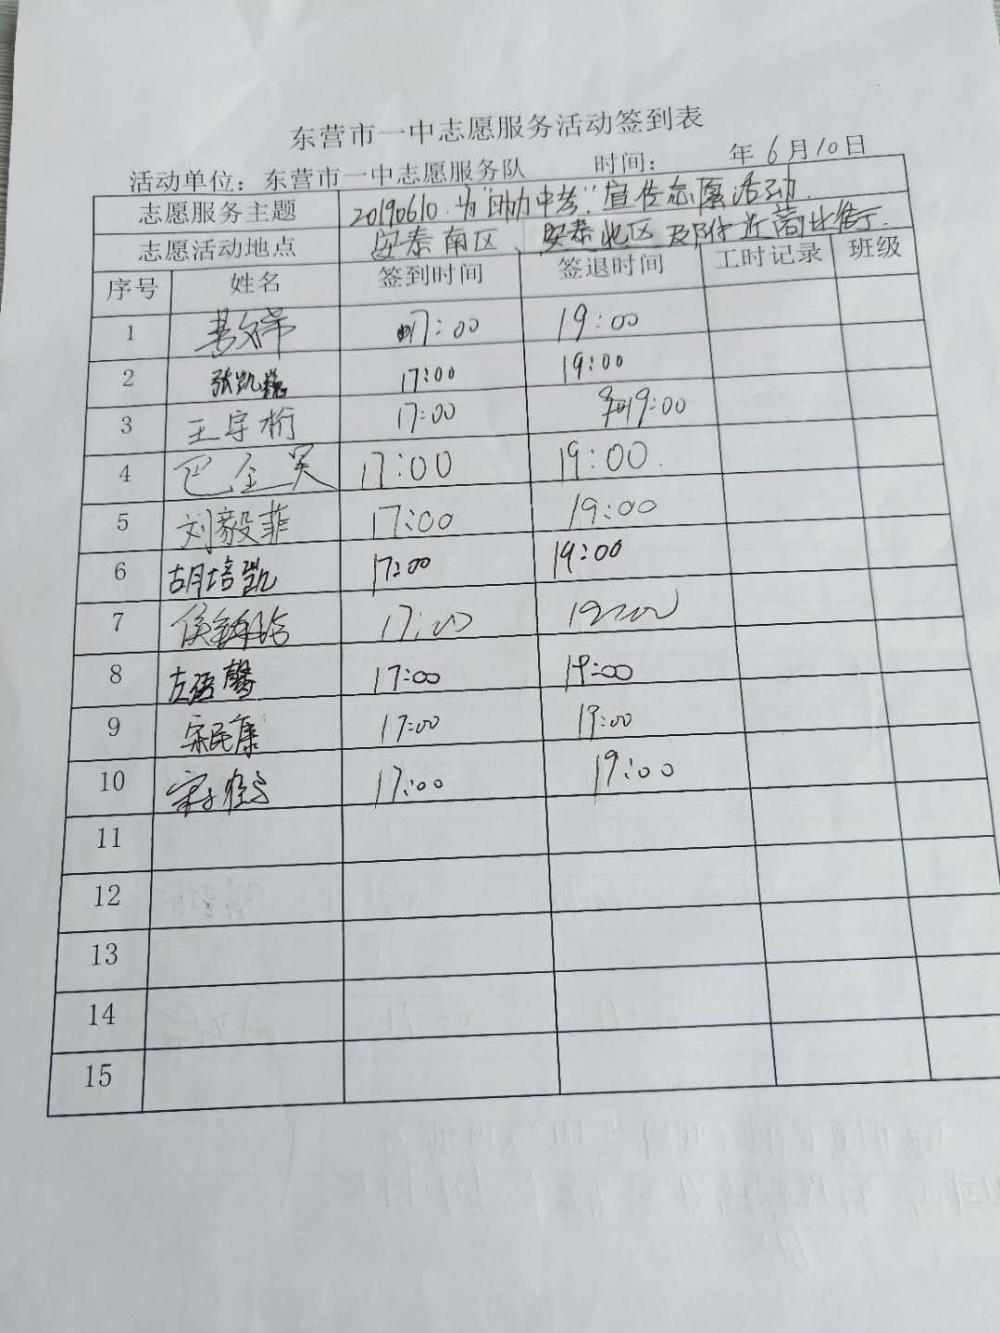 东营市一中志愿服务活动签到表
活动单位：东营市一中志愿服务队 时间： 年6月10日
志愿服务主题 20190610.为"助力中考"宣传志愿活动.
志愿活动地点 安泰南区、安泰北区及附近商业街.
序号 姓名 签到时间 签退时间 工时记录 班级
1 17:00 19:00
2 张凯 17:00 19:00
3 王宇桁 17:00 19:00
4 巴金昊 17:00 19:00.
5 刘毅菲 17:00 19:00
6 胡培凯 17:00 19:00
7 侯 17:00 19:00
8 左 馨 17:00 19:00
9 宋民康 17:00 19:00
10 17:00 19:00
11
12
13
14
15